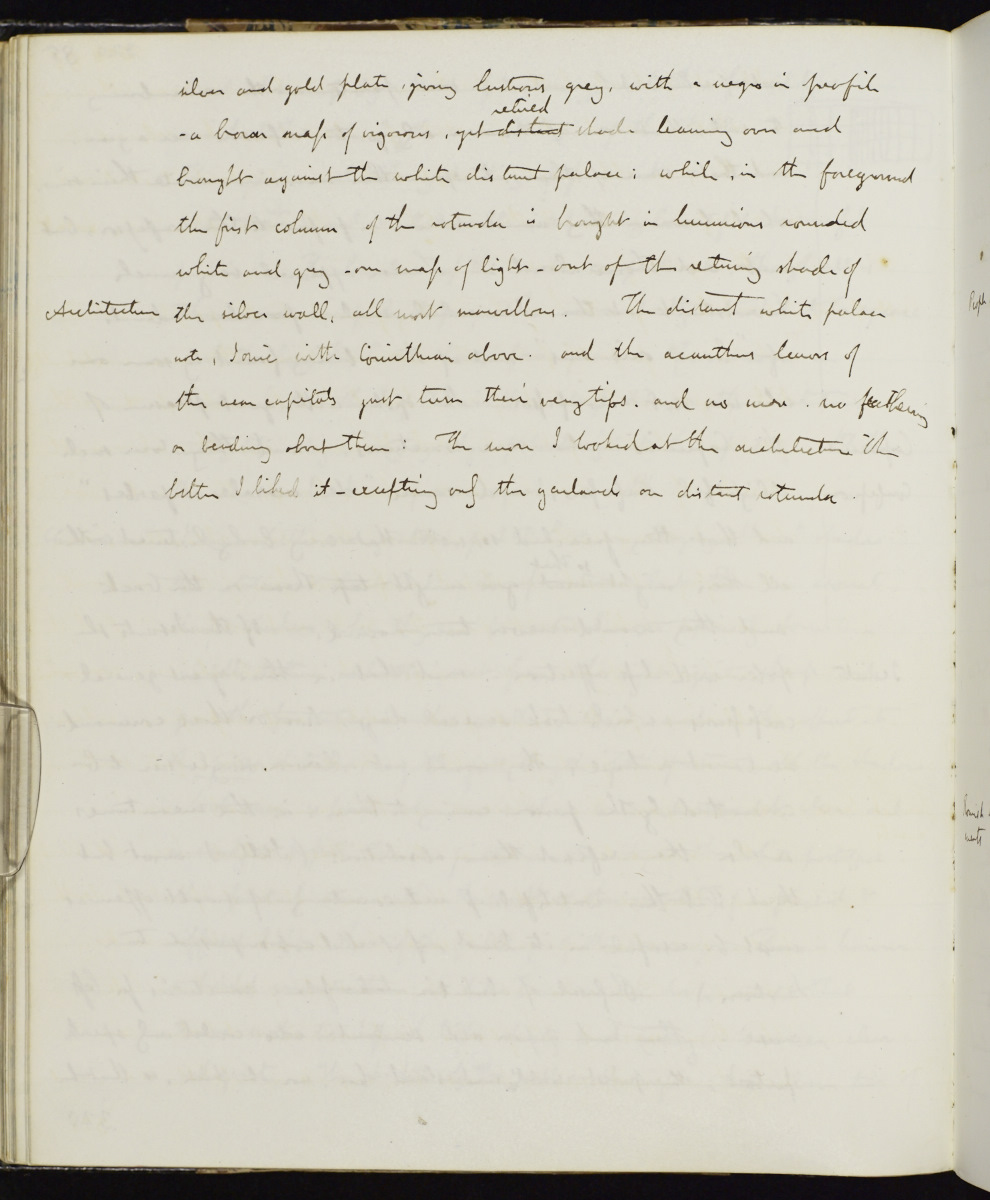 silver and gold plate, giving lustrous grey, with a negro in profile
retired
- a brown mass of vigorous, yet distant shade leaning over and
brought against the white distant palace: while, in the foreground
the first column of the rotunda is brought in luminous rounded
white and grey - one mass of light - out of the retiring shade of
Architecture the silver wall, all most marvellous. The distant white palace
note, Ionic with Corinthian above. and the acanthus leaves of
the near capitals just turn their very tips. and no more. no feathering
or bending about them: The more I looked at the architecture the
better I liked it - excepting only the garlands on distant rotunda.